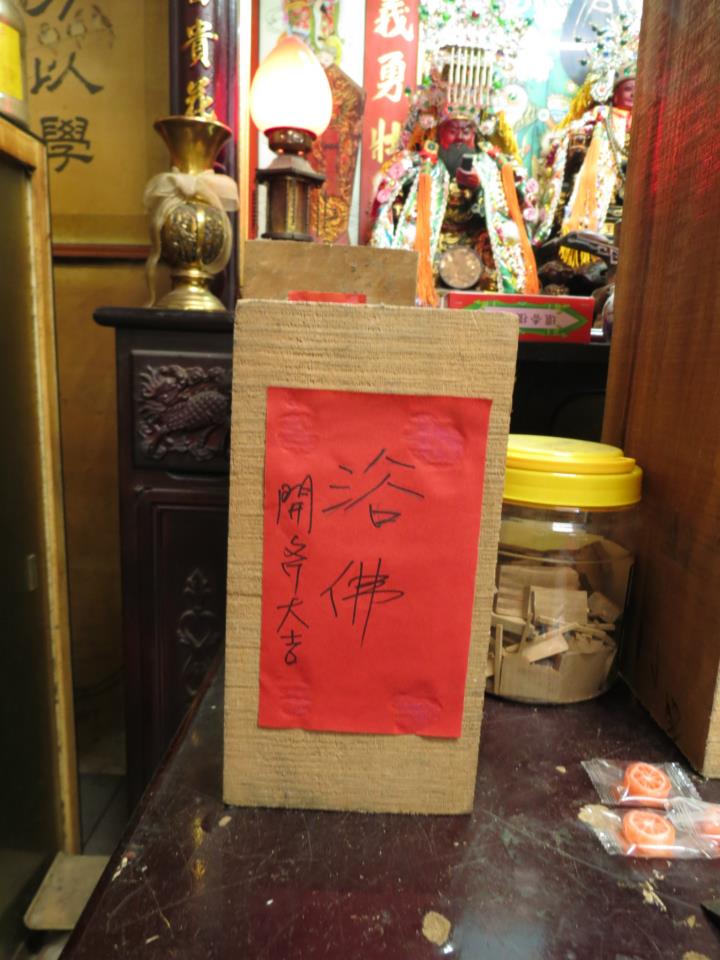 浴佛
開斧大吉
義勇
貴
以學